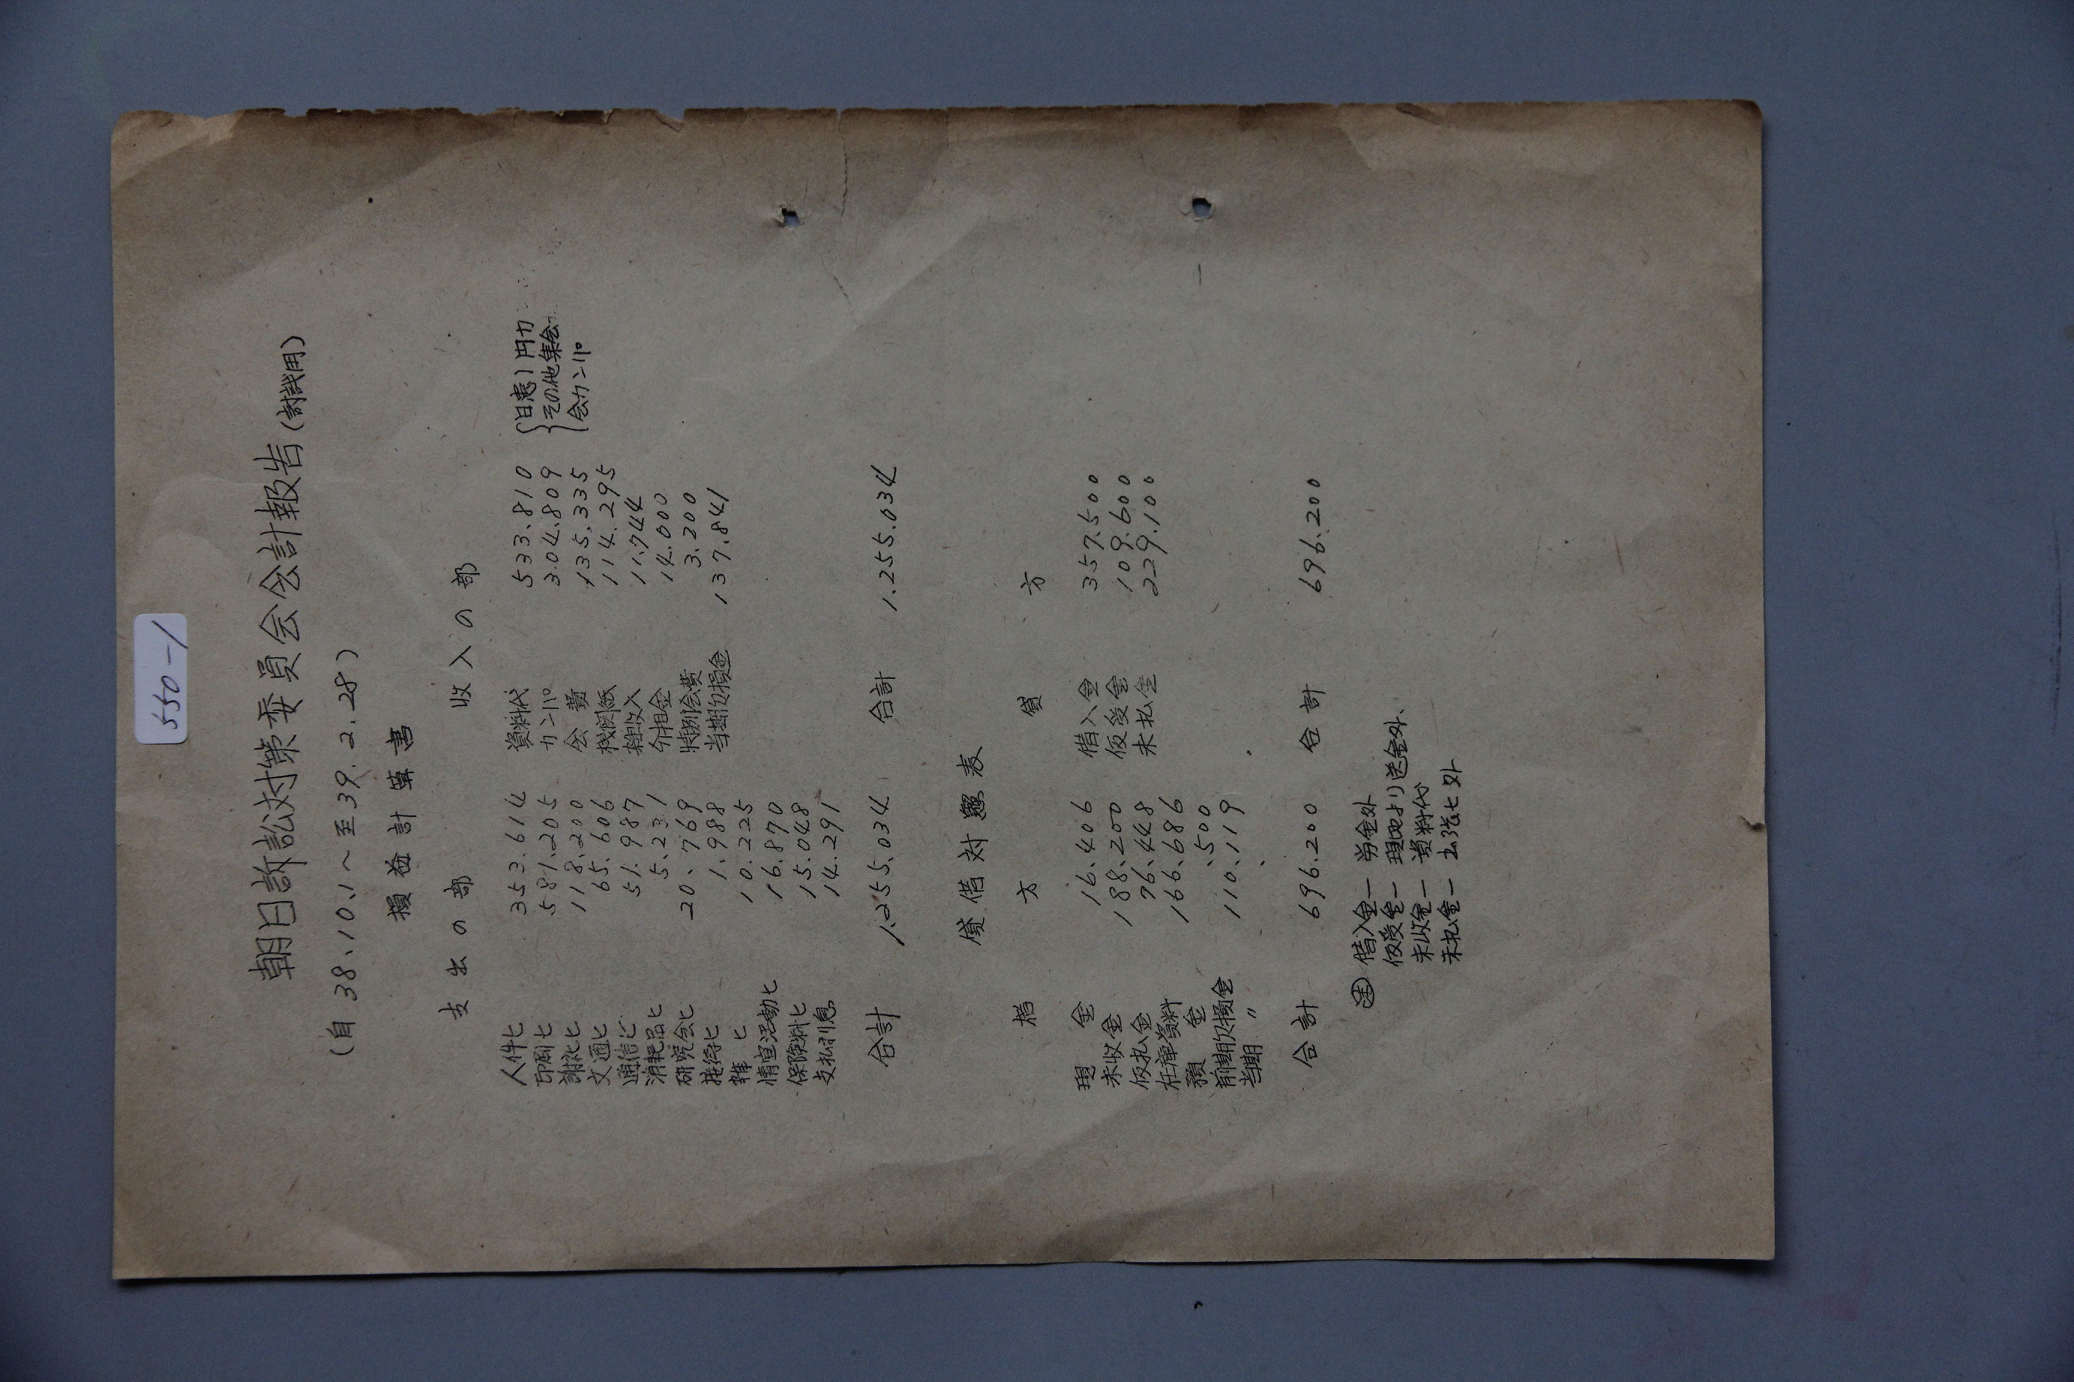 550-1
朝日訴訟対策委員会会計報告(討議用)
(自38、10、1〜至39.2.28)
損益計算書
支出の部 収入の部
人件ヒ 353.614 資料代 533.810 日患1円カ
印刷ヒ 581.205 カンパ 3.04.809 その他集会
謝礼ヒ 118.200 会費 135.335 会カンパ
交通ヒ 65.606 機関紙 114.295
通信ヒ 51.987 雑収入 11.744
消耗品ヒ 5.231 14.000
研究会ヒ 20、769 特別会費 3.200
接待ヒ 1.988 当期欠損金 137.841
雑ヒ 10.225
情宣活動ヒ 16.870
保険料ヒ 15.048
支払利息 14.291
合計 1.255.034 合計 1.255.034
貸借対照表
借方 貸方
現金 16.406 借入金 357.500
未収金 188.200 仮受金 109.600
仮払金 76.448 未払金 229.100
在庫資料 166.686
預金 、500
前期欠損金 110.119
当期 〃
合計 696.200 合計 696.200
注 借入金ー労金外
仮受金ー現地より送金外、
未収金ー資料代
未払金ー出張ヒ外